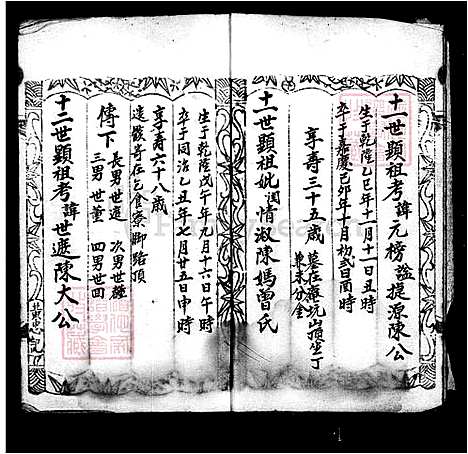 十一世顯祖考諱元榜謚提源陳公
生于乾隆乙巳年十一月十一日丑時
卒于嘉慶己卯年十月初弍日酉時
享壽三十五歲
葬在 坑山頂坐丁
兼未分金
十一世顯祖妣閨情淑陳媽曾氏
生于乾隆戊午年元月十六日午時
卒于同治乙丑年七月廿五日申時
享壽六十八歲
遺骸寄在乞食寮腳路頂
傳下
長男世遮 次男世經
三男世童 四男世回
十二世顯祖考諱世遮陳大公